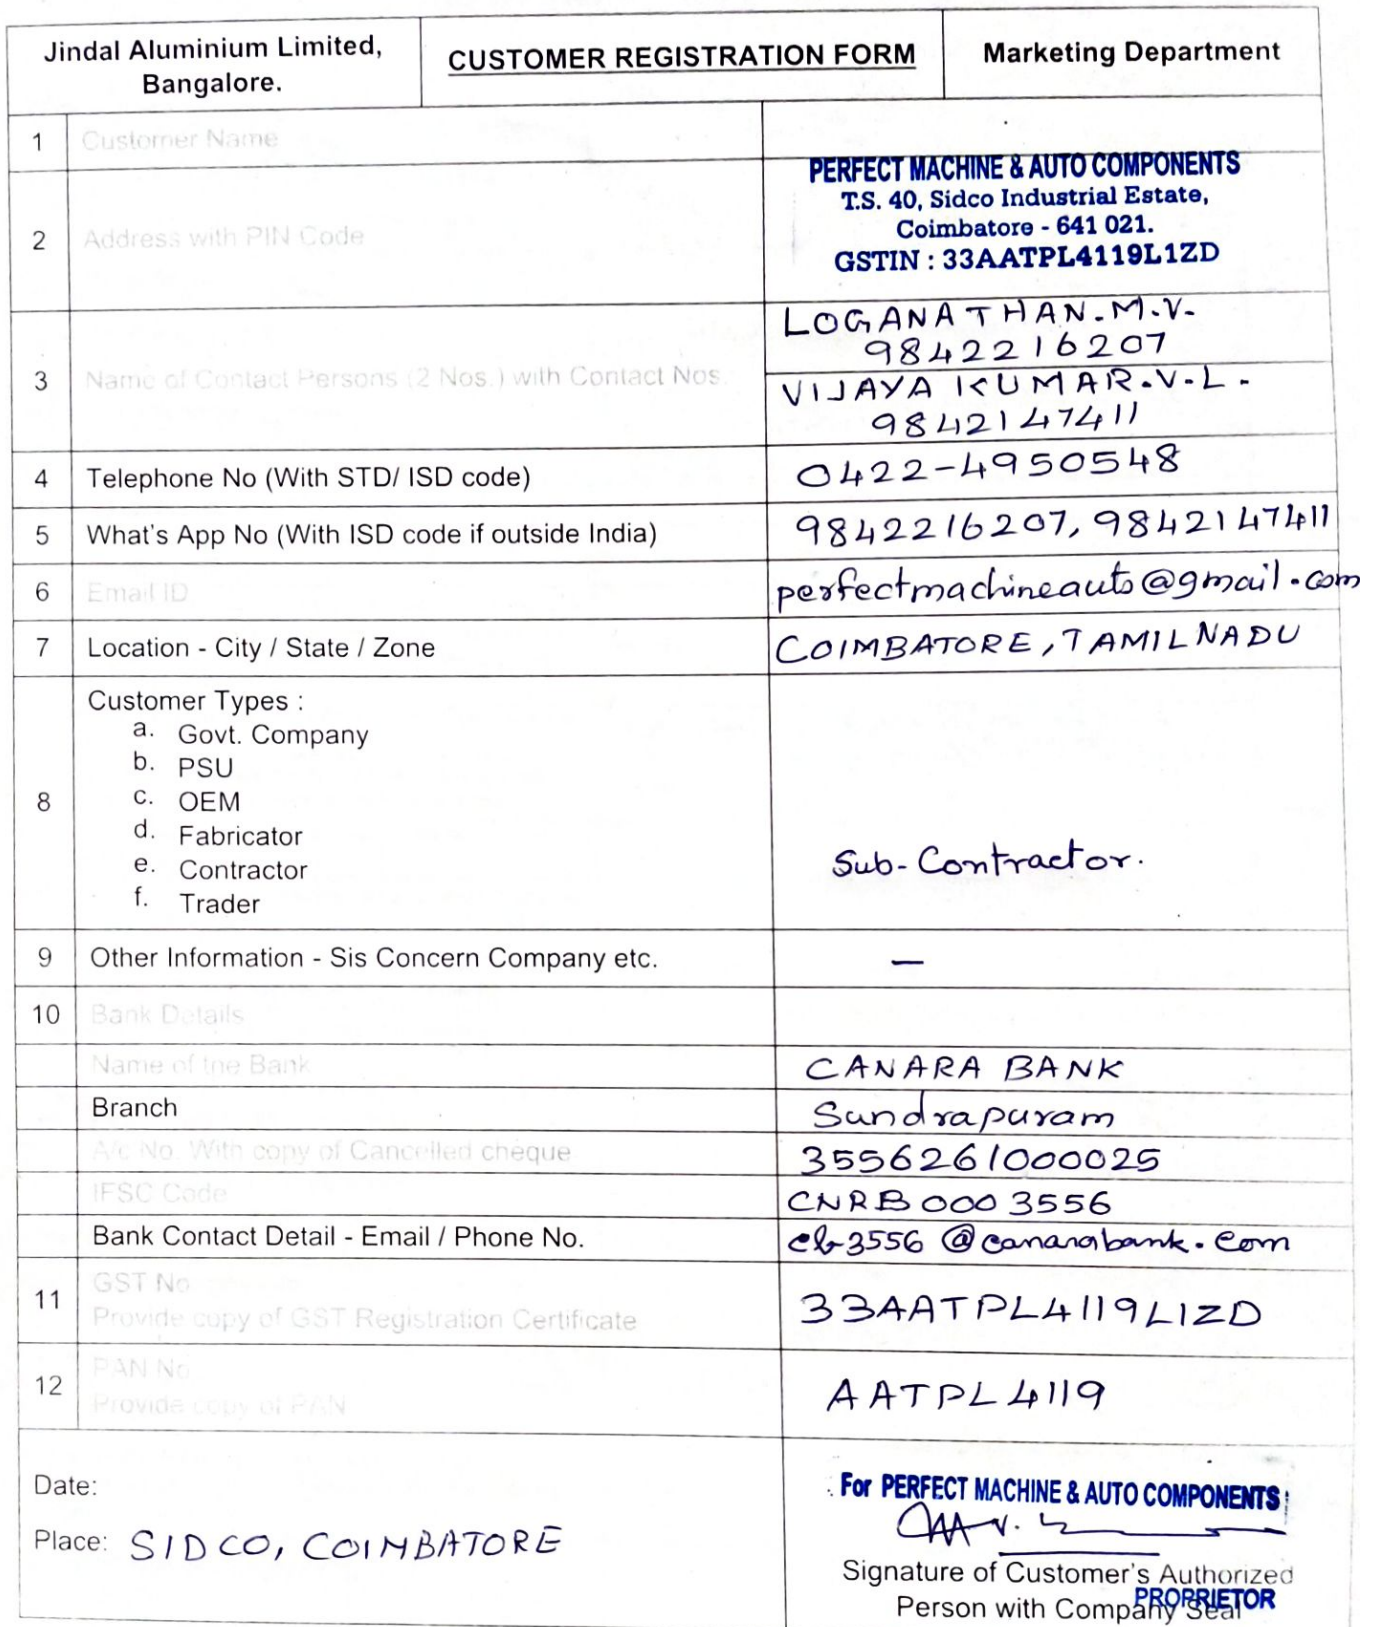 Jindal Aluminium Limited,
Bangalore.
CUSTOMER REGISTRATION FORM
Marketing Department
1 Customer Name
PERFECT MACHINE & AUTO COMPONENTS
2 Address with PIN Code
T.S. 40, Sidco Industrial Estate,
Coimbatore - 641 021.
GSTIN : 33AATPL4119L1ZD
3 Name of Contact Persons (2 Nos.) with Contact Nos.
LOGANATHAN.M.V.
9842216207
VIJAYA KUMAR.V.L.
9842147411
4 Telephone No (With STD/ ISD code) 0422-4950548
5 What's App No (With ISD code if outside India) 9842216207, 9842147411
6 Email ID perfectmachineauto@gmail.com
7 Location - City / State / Zone COIMBATORE, TAMILNADU
8 Customer Types :
a. Govt. Company
b. PSU
c. OEM
d. Fabricator
e. Contractor Sub-Contractor.
f. Trader
9 Other Information - Sis Concern Company etc. —
10 Bank Details
Name of the Bank CANARA BANK
Branch Sundrapuram
A/c No. With copy of Cancelled cheque 3556261000025
IFSC Code CNRB0003556
Bank Contact Detail - Email / Phone No. cb3556@canarabank.com
11 GST No
Provide copy of GST Registration Certificate 33AATPL4119L1ZD
12 PAN No
Provide copy of PAN AATPL4119
Date:
Place: SIDCO, COIMBATORE
For PERFECT MACHINE & AUTO COMPONENTS
Signature of Customer's Authorized
Person with Company Seal
PROPRIETOR